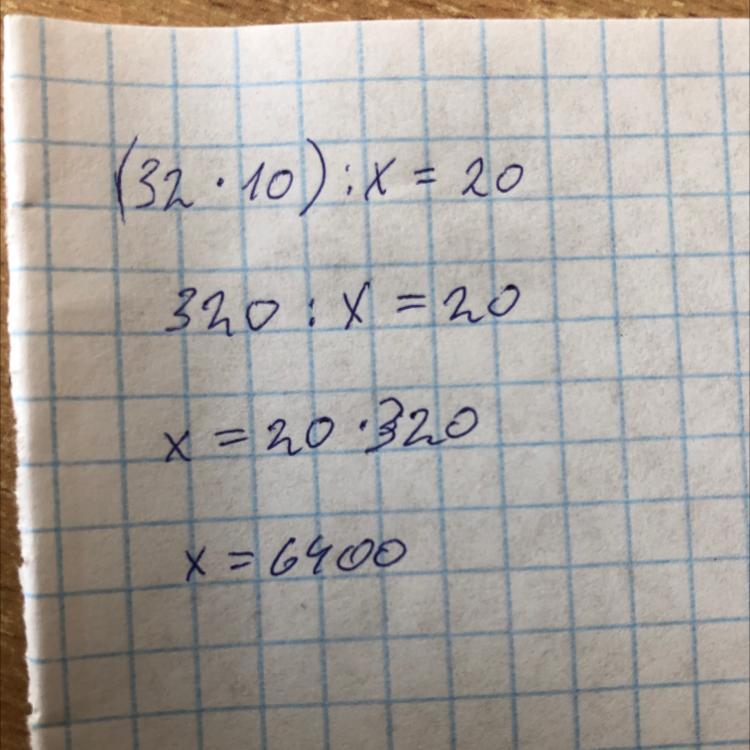 (32 · 10) : x = 20
320 : x = 20
x = 20 · 320
x = 6400